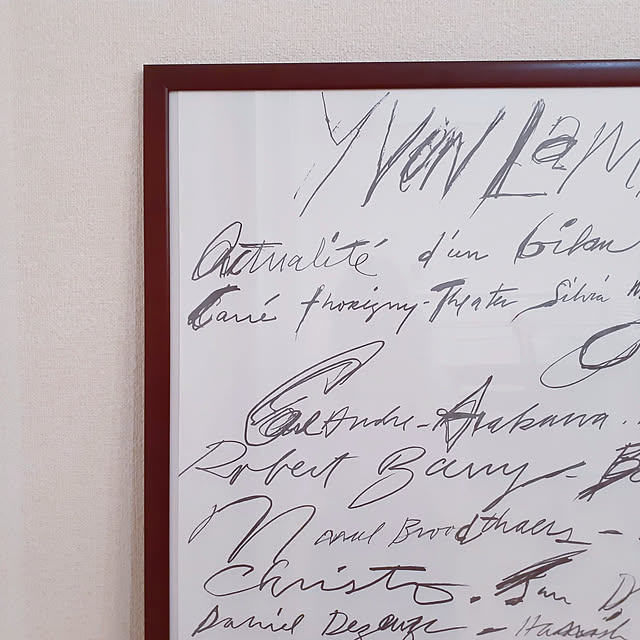 YVON LAM
Actualité d'un bilan
Carré Thorigny - Theater Silvia M
Carl Andre - Arakawa.
Robert Barry - B
Marcel Broodthaers -
Christo. Jan D
Daniel Dezeuze -